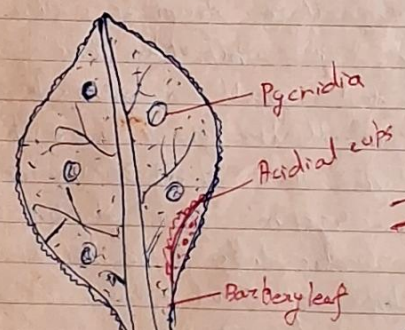 Pycnidia
Acidial cups
Barbery leaf